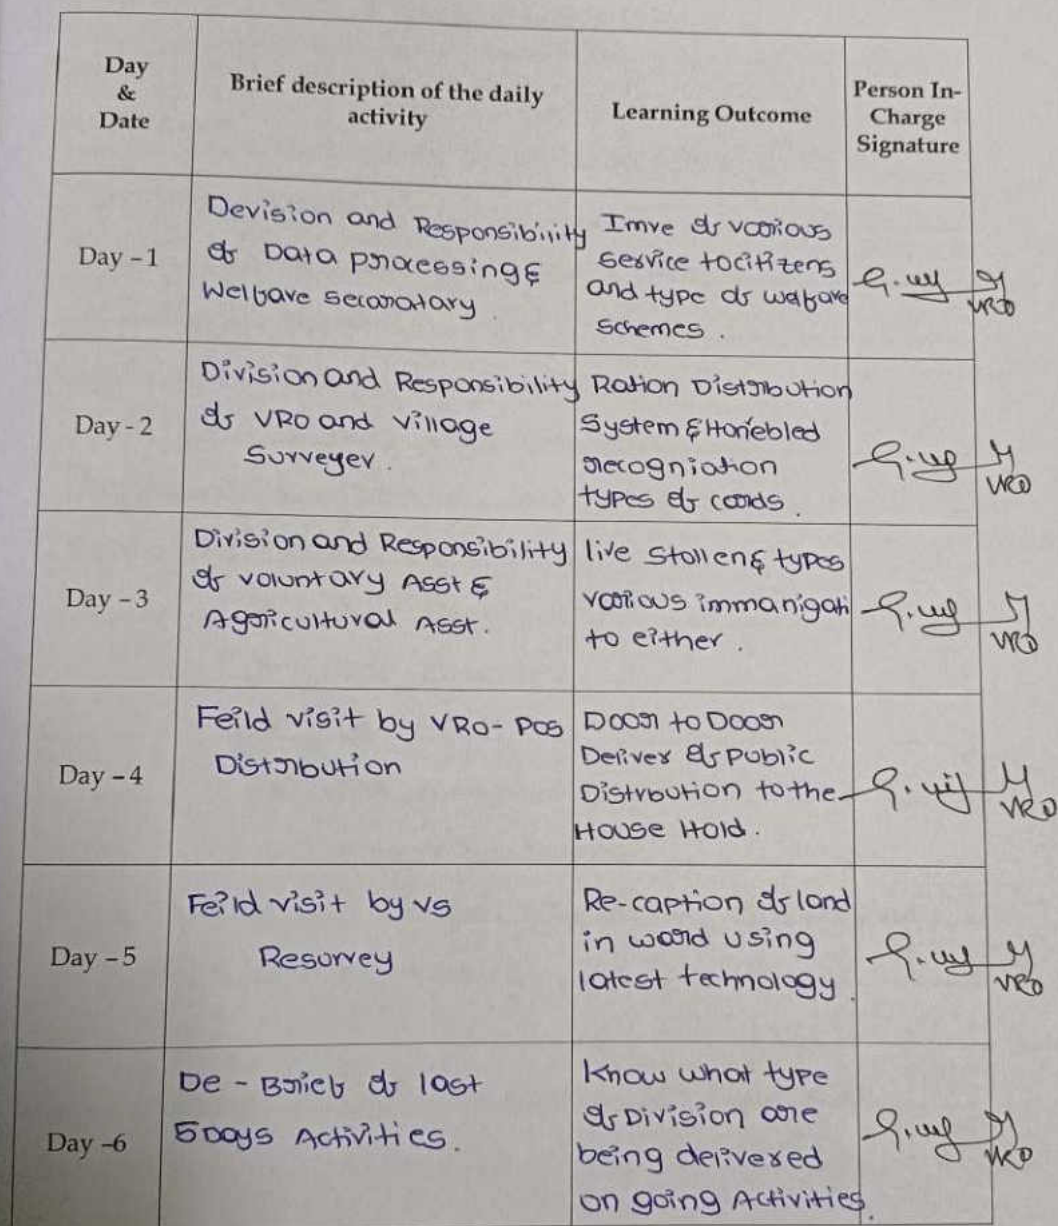 Day
&
Date
Brief description of the daily
activity
Learning Outcome
Person In-
Charge
Signature
Day - 1
Devision and Responsibility
of Data processing &
Welfare secaratary
Imve of various
service to citizens
and type of welfare
schemes.
VRO
Day - 2
Division and Responsibility
of VRO and village
Surveyer.
Ration Distribution
System &
recogniation
types of cards.
VRO
Day - 3
Division and Responsibility
of voluntary Asst &
Agricultural Asst.
live Stollen & types
various immanigati
to either.
VRO
Day - 4
Feild visit by VRO - Pos
Distribution
Door to Door
Deliver of public
Distrbution to the
House Hold.
VRO
Day - 5
Feild visit by vs
Resurvey
Re-caption of land
in word using
latest technology.
VRO
Day - 6
De - Brief of last
5 Days Activities.
Know what type
of Division are
being delivered
on going Activities.
VRO